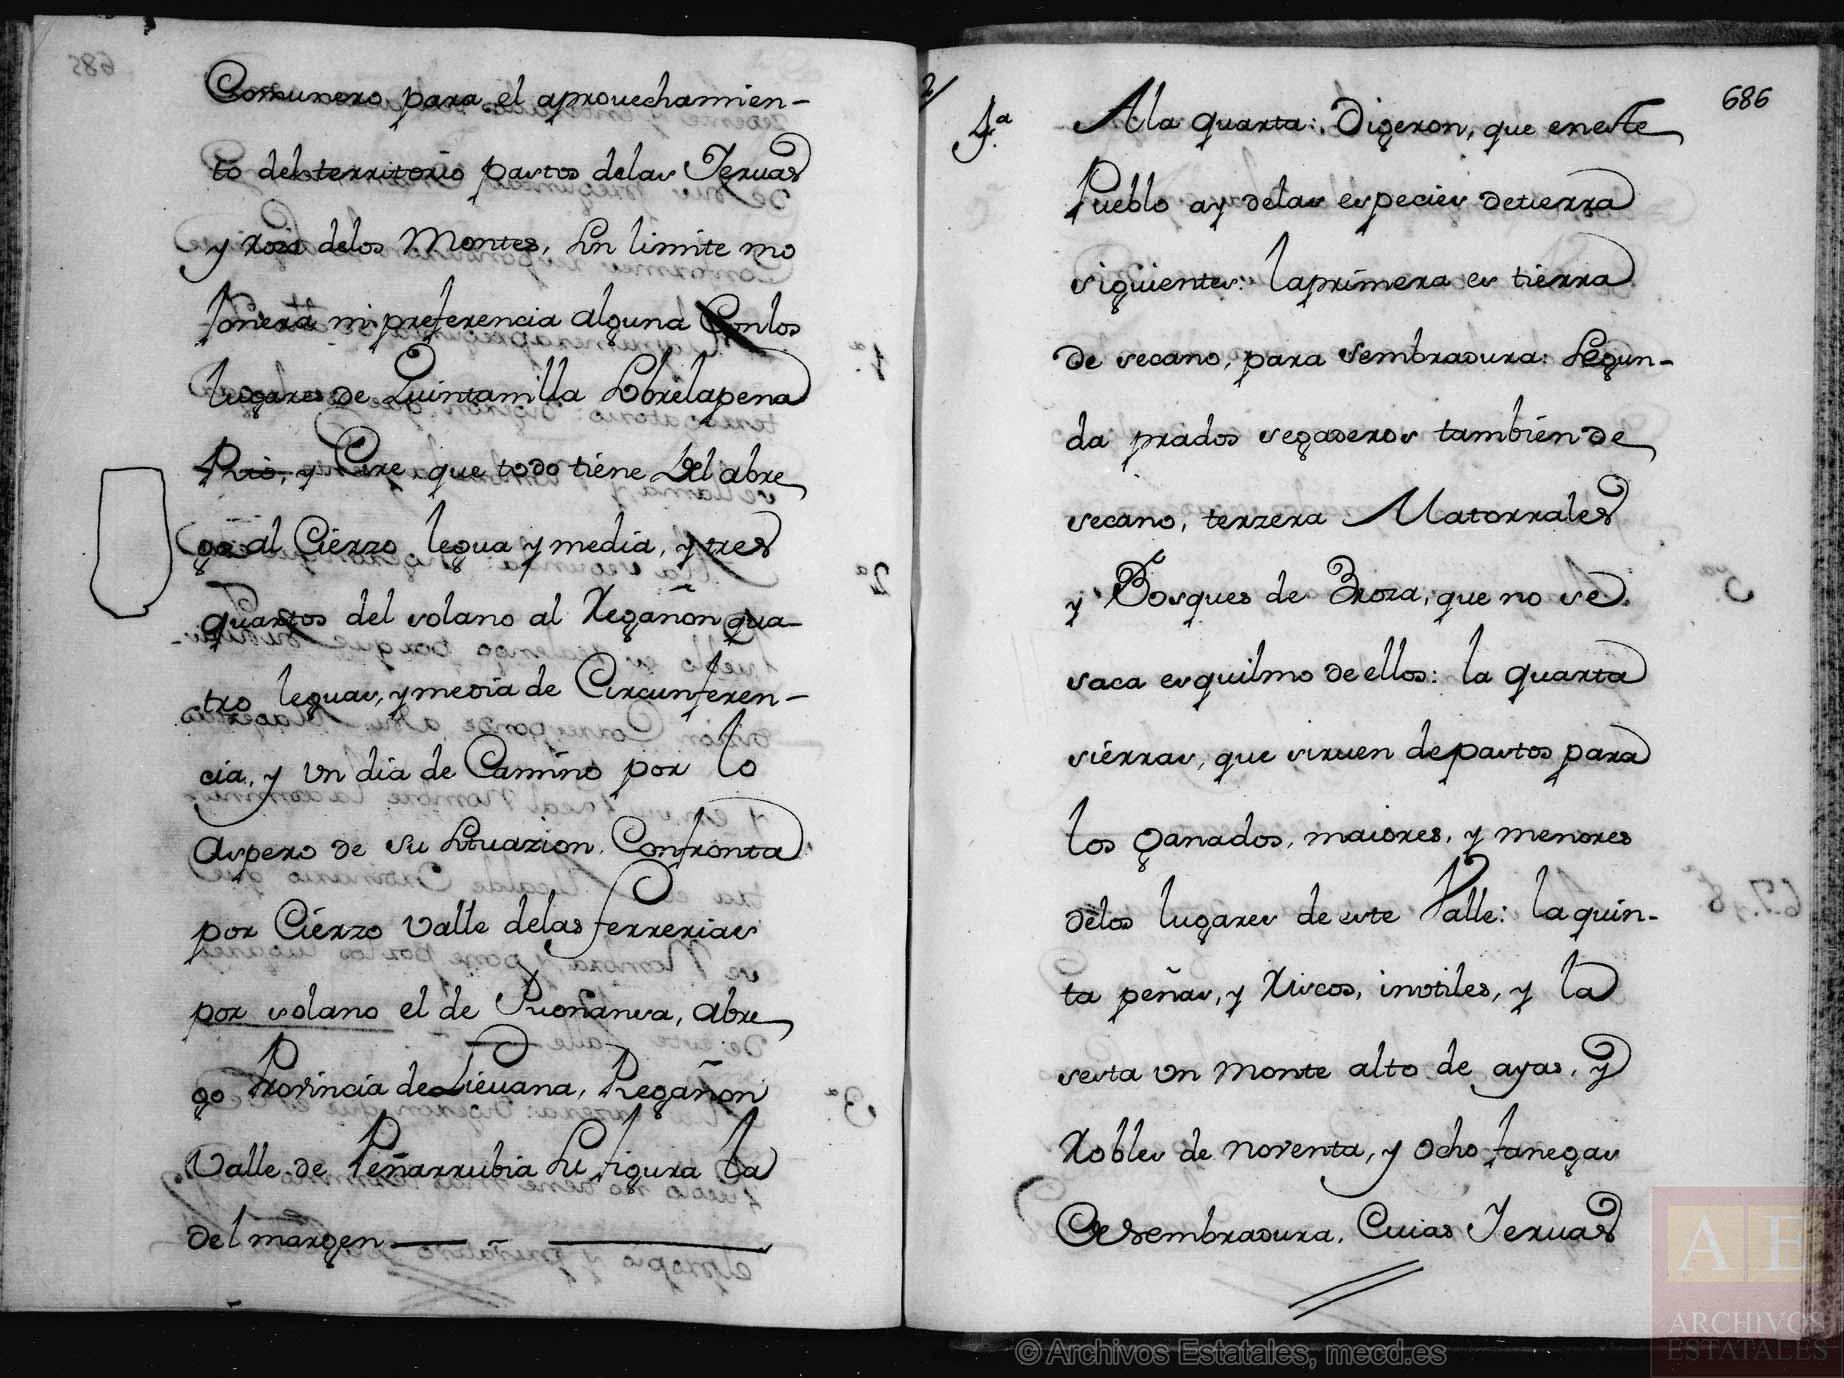 Comunero para el aprouechamien-
to del territorio pastos delas Yeruas
y Roza delos Montes, sin limite mo
Jonera ni preferencia alguna Conlos
lugares de Quintanilla Sobrelapeña
Rio, y Cire que todo tiene Del abre
go al Cierzo legua y media, y tres
quartos del solano al Regañon qua-
tro leguas, y media de Circunferen-
cia, y Un dia de Camino por lo
aspero de su Situazion. Confronta
por Cierzo Valle delas ferrerias
por solano el de Ruonansa, abre
go Provincia deLieuana, Regañon
Valle de Peñarrubia Su figura la
del margen
686
4.ª
Ala quarta: Digeron, que eneste
Pueblo ay delas especies detierra
siguientes: laprimera es tierra
de secano, para sembradura: Segun-
da prados segaderos tambien de
secano, terzera Matorrales
y Bosques de Broza, que no se
saca esquilmo de ellos: la quarta
sierras, que siruen de pastos para
los ganados, maiores, y menores
delos lugares de este Valle: la quin-
ta peñas, y Riscos, inutiles, y la
sesta Un monte alto de ayas, y
Robles de noventa, y ocho fanegas
de sembradura, Cuias Yeruas
© Archivos Estatales, mecd.es
AE
ARCHIVOS
ESTATALES